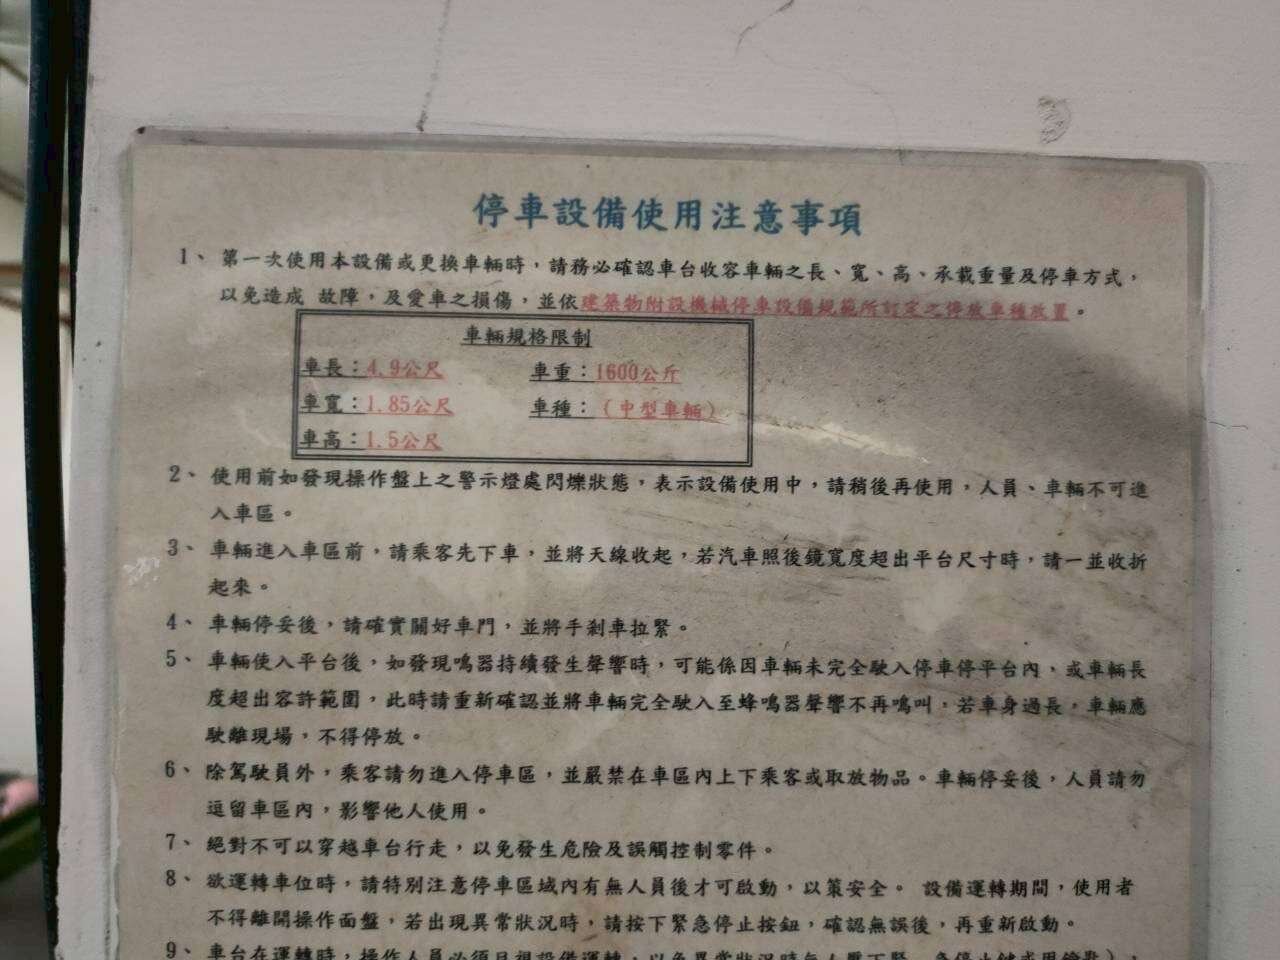 停車設備使用注意事項
1、第一次使用本設備或更換車輛時，請務必確認車台收容車輛之長、寬、高、承載重量及停車方式，
以免造成 故障，及愛車之損傷，並依建築物附設機械停車設備規範所訂定之停放車種放置。
車輛規格限制
車長：4.9公尺 車重：1600公斤
車寬：1.85公尺 車種：（中型車輛）
車高：1.5公尺
2、使用前如發現操作盤上之警示燈處閃爍狀態，表示設備使用中，請稍後再使用，人員、車輛不可進
入車區。
3、車輛進入車區前，請乘客先下車，並將天線收起，若汽車照後鏡寬度超出平台尺寸時，請一並收折
起來。
4、車輛停妥後，請確實關好車門，並將手剎車拉緊。
5、車輛使入平台後，如發現鳴器持續發生聲響時，可能係因車輛未完全駛入停車停平台內，或車輛長
度超出容許範圍，此時請重新確認並將車輛完全駛入至蜂鳴器聲響不再鳴叫，若車身過長，車輛應
駛離現場，不得停放。
6、除駕駛員外，乘客請勿進入停車區，並嚴禁在車區內上下乘客或取放物品。車輛停妥後，人員請勿
逗留車區內，影響他人使用。
7、絕對不可以穿越車台行走，以免發生危險及誤觸控制零件。
8、欲運轉車位時，請特別注意停車區域內有無人員後才可啟動，以策安全。 設備運轉期間，使用者
不得離開操作面盤，若出現異常狀況時，請按下緊急停止按鈕，確認無誤後，再重新啟動。
9、車台在運轉時，操作人員必須目視設備運轉，以免異常狀況時無人壓下緊 急停止鍵或用鑰匙），